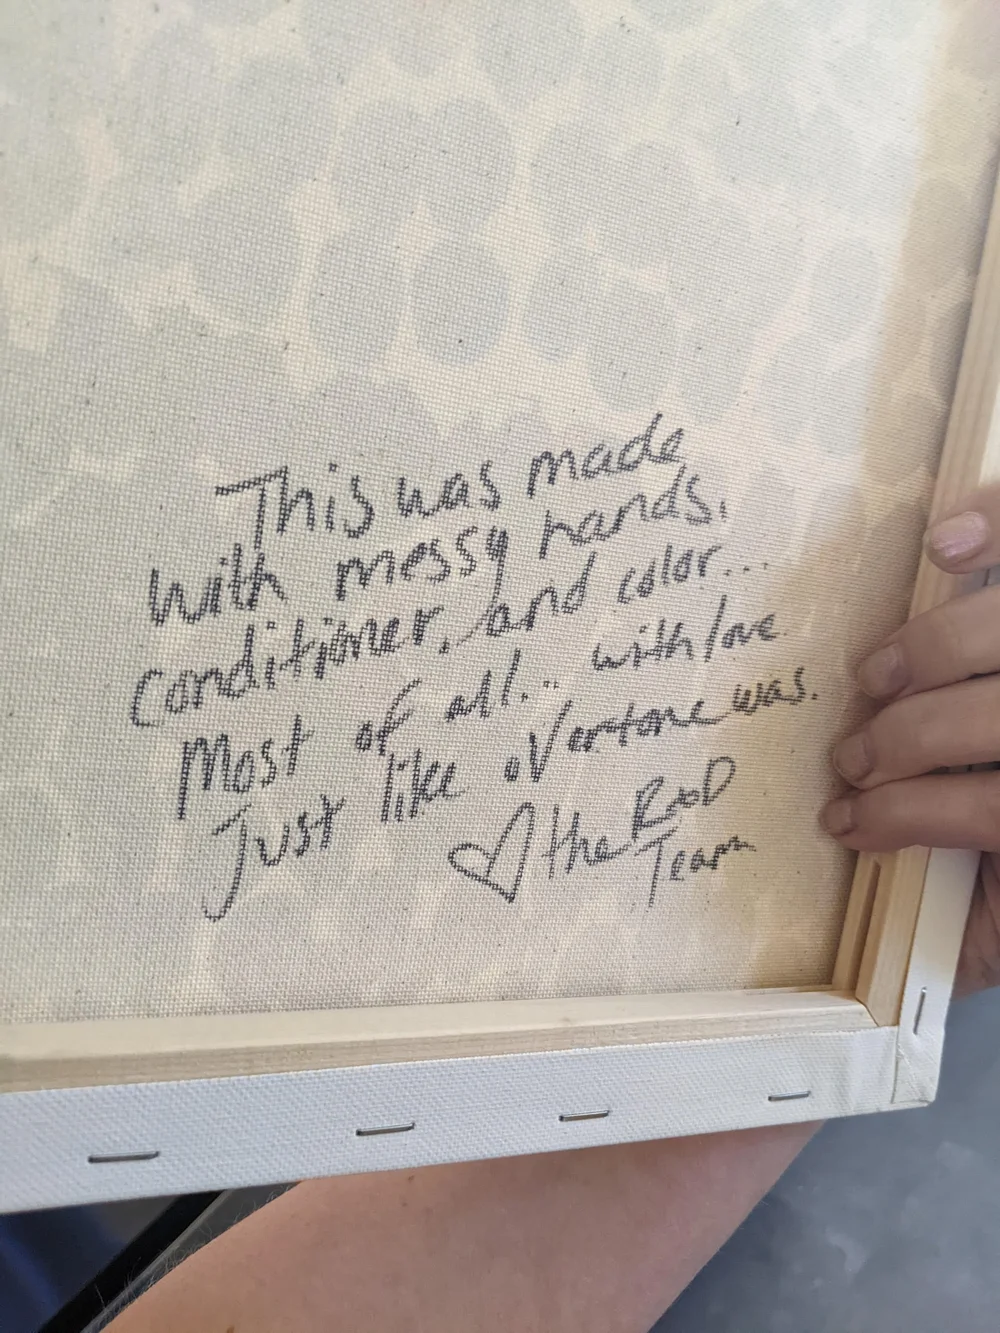 This was made
with messy hands,
conditioner, and color...
Most of all... with love
Just like oVertone was.
♡ the R&D
Team